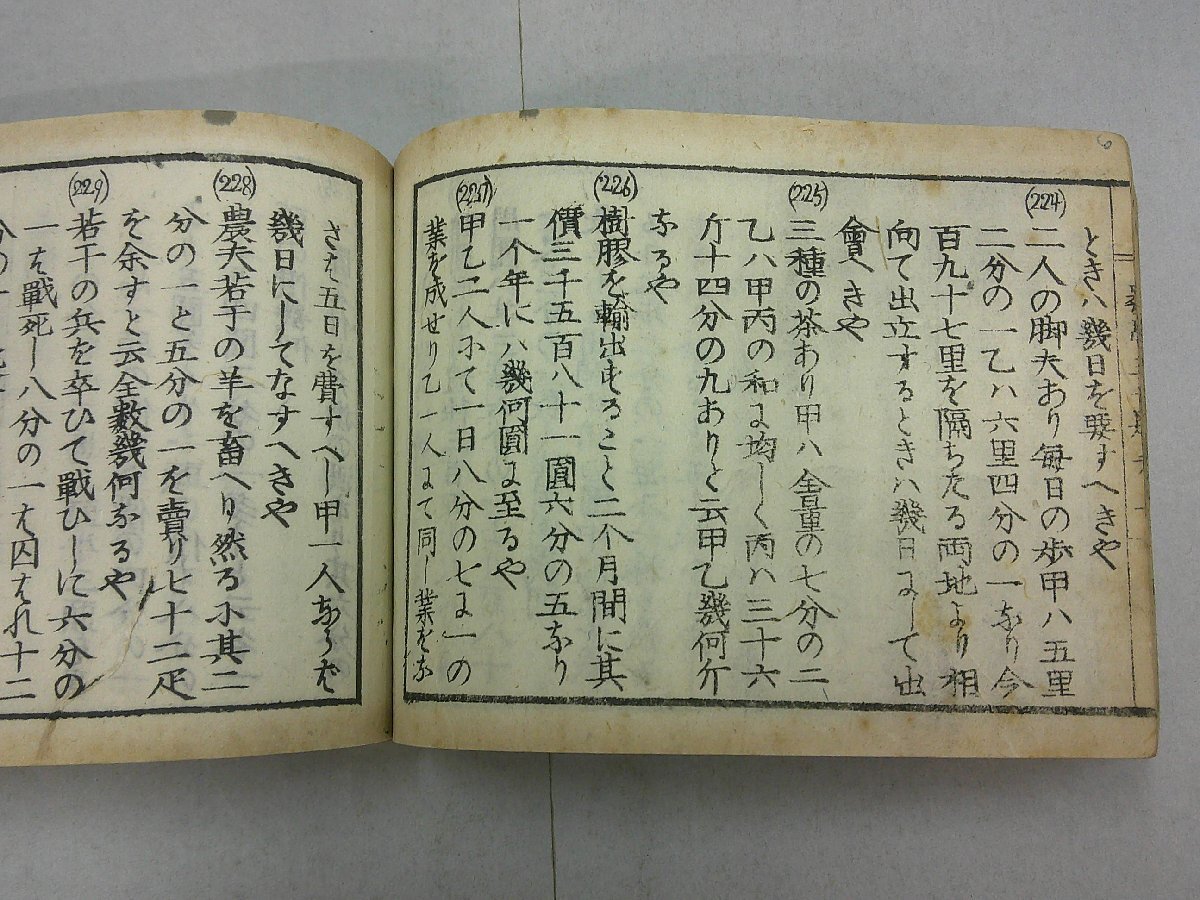 ときハ幾日を要すへきや
(224)
二人の脚夫あり毎日の歩甲ハ五里
二分の一乙ハ六里四分の一なり今
百九十七里を隔ちたる両地より相
向て出立するときハ幾日にして出
會へきや
(225)
三種の茶あり甲ハ全量の七分の二
乙ハ甲丙の和に均しく丙ハ三十六
斤十四分の九ありと云甲乙幾何斤
なるや
(226)
樹膠を輸出すること二个月間に其
價三千五百八十一圓六分の五なり
一个年にハ幾何圓に至るや
(227)
甲乙二人にて一日八分の七に一の
業を成せり乙一人にて同し業をな
さは五日を費すへし甲一人ならは
幾日にしてなすへきや
(228)
農夫若干の羊を畜へり然るに其二
分の一と五分の一を賣り七十二疋
を余すと云全数幾何なるや
(229)
若干の兵を卒ひて戰ひしに六分の
一は戰死し八分の一は囚はれ十二